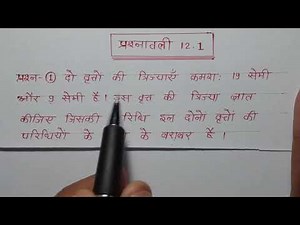 प्रश्नावली 12.1
प्रश्न-① दो वृत्तों की त्रिज्याएँ क्रमशः 19 सेमी
और 9 सेमी हैं। उस वृत्त की त्रिज्या ज्ञात
कीजिए जिसकी इन दोनों वृत्तों की
परिधियों के के बराबर है।